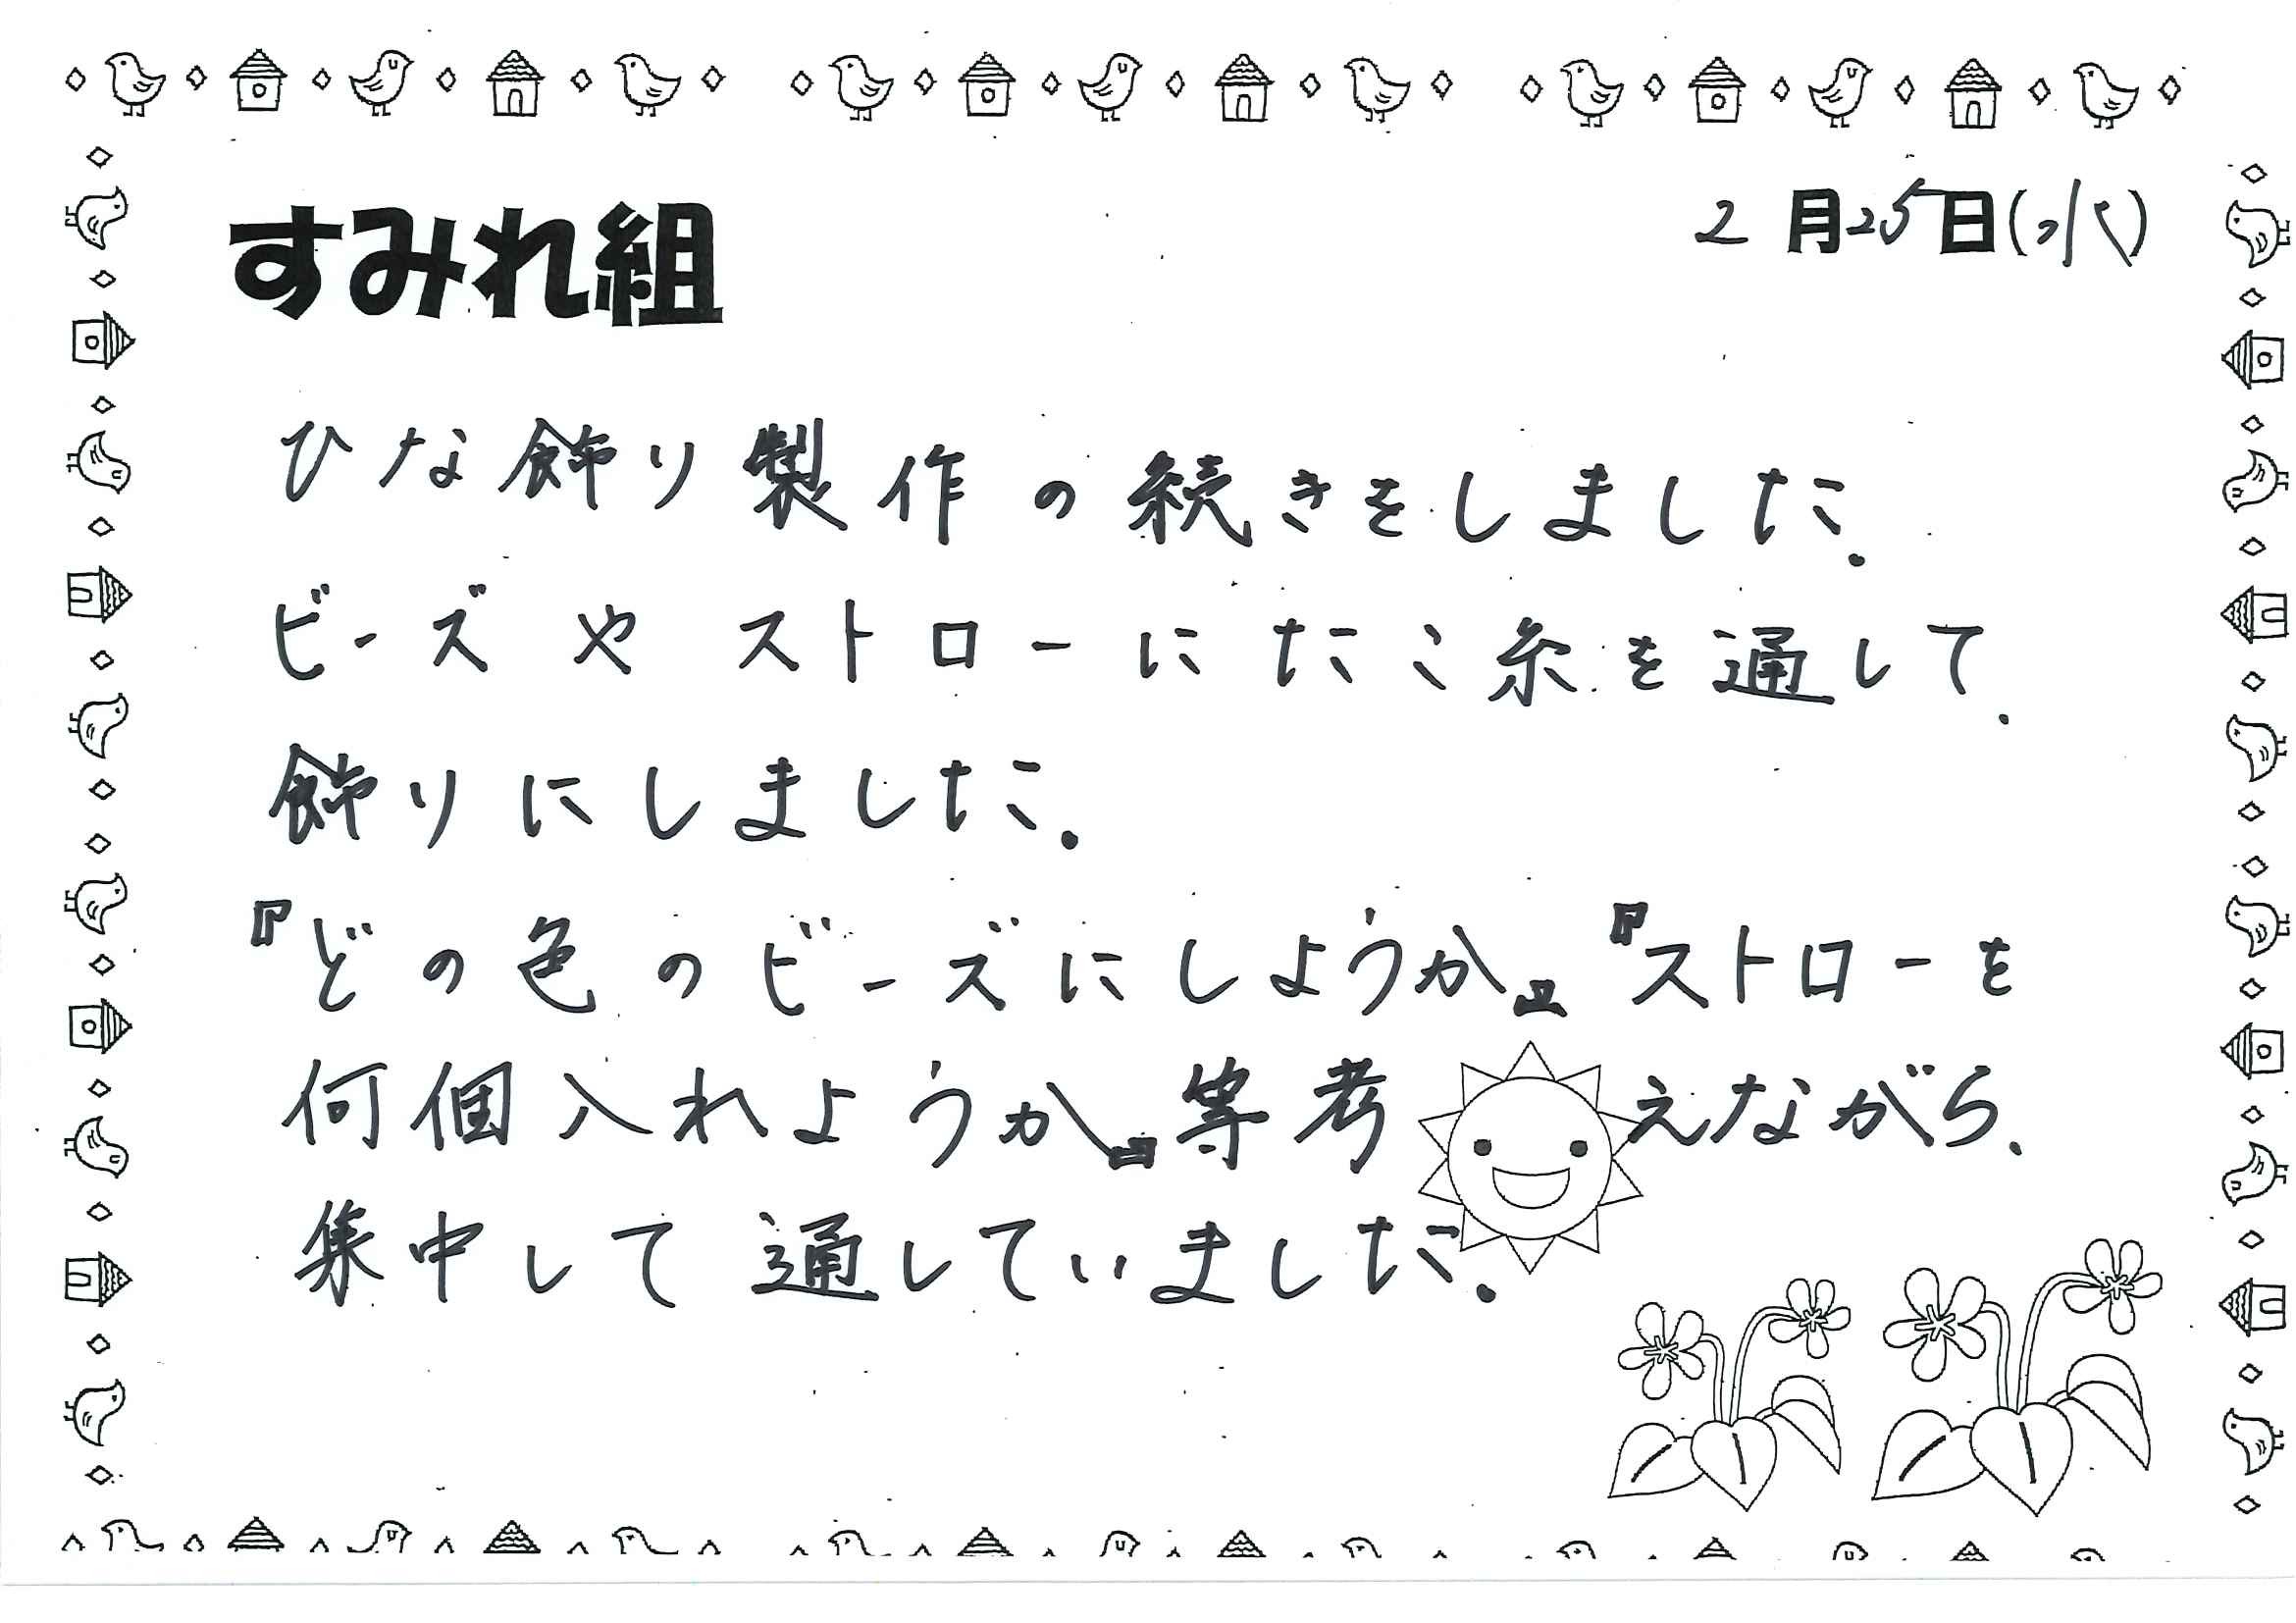 すみれ組
2月25日(水)
ひな飾り製作の続きをしました。
ビーズやストローにたこ糸を通して、
飾りにしました。
『どの色のビーズにしようか』『ストローを
何個入れようか』等考えながら、
集中して通していました。